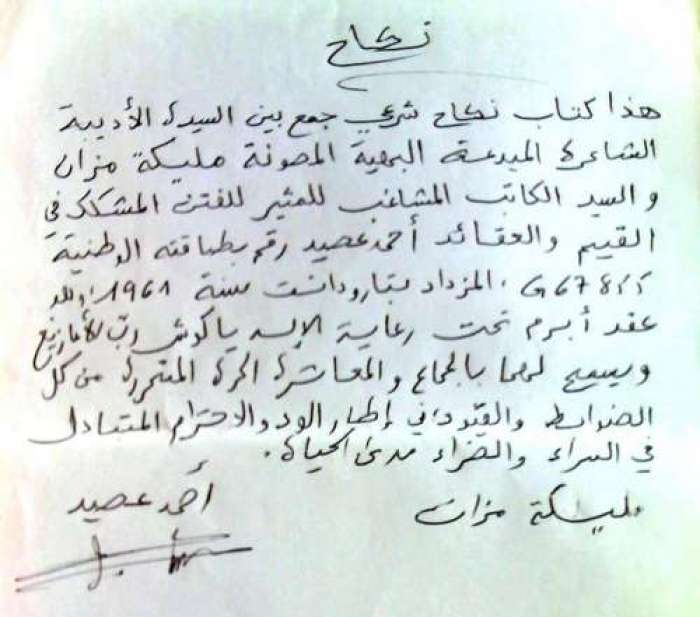 نكاح
هذا كتاب نكاح شرعي جمع بين السيدة الأديبة
الشاعرة المبدعة البهية المصونة مليكة مزان
و السيد الكاتب المشاغب المثير للفتن المشكك في
القيم والعقائد أحمد عصيد رقم بطاقته الوطنية
المزداد بتارودانت سنة 1961
عقد أبرم تحت رعاية الإله ياكوش رب الأمازيغ
ويسمح لهما بالجماع والمعاشرة الحرة المتحررة من كل
الضوابط والقيود في إطار الود والاحترام المتبادل
في السراء والضراء مدى الحياة.
مليكة مزان
أحمد عصيد